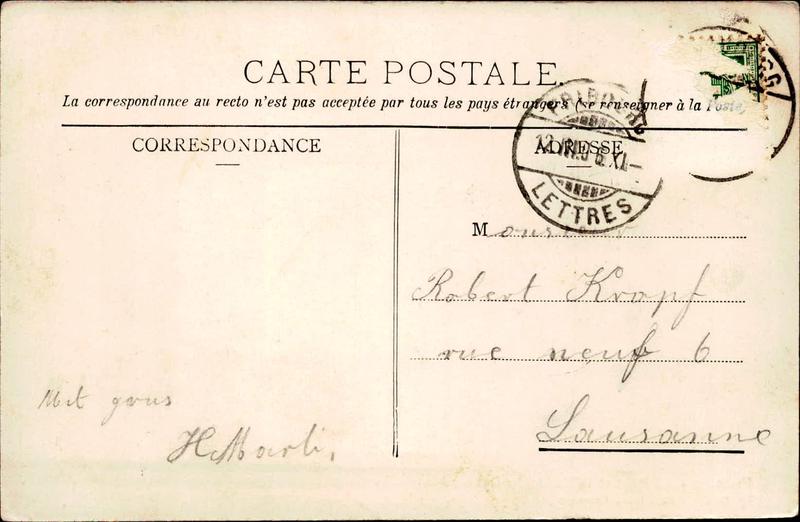 CARTE POSTALE
La correspondance au recto n'est pas acceptée par tous les pays étrangers (se renseigner à la Poste)
CORRESPONDANCE
ADRESSE
LETTRES
Monsieur
Robert Kropf
rue neuf 6
Lausanne
H. Marti,